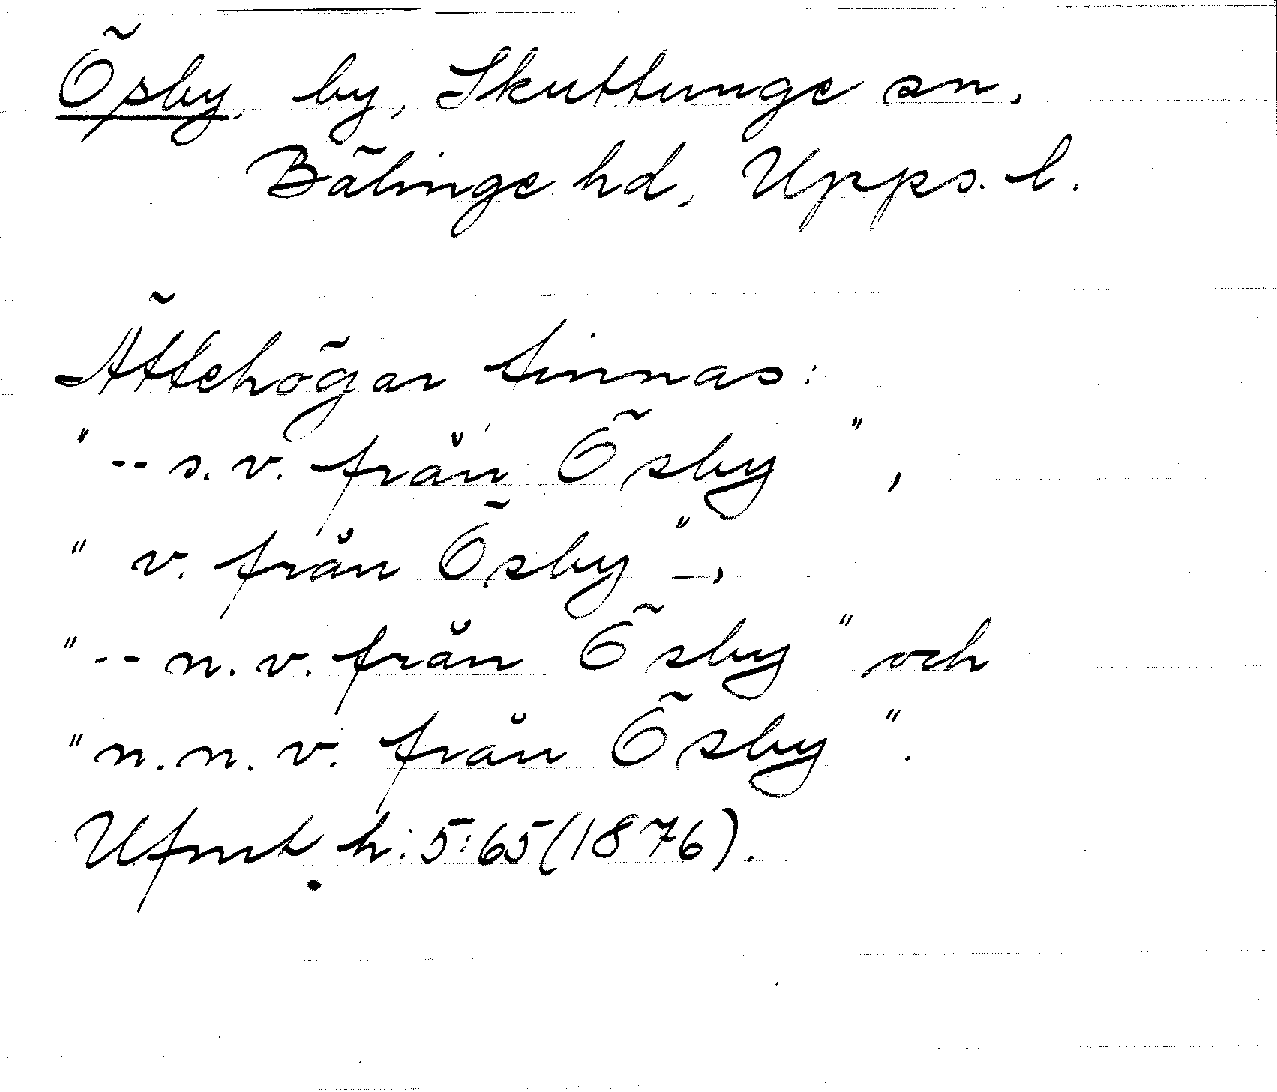 Ösby, by, Skuttunge sn,
Bälinge hd, Upps. l.
Ättehögar finnas:
"-- s.v. från Ösby",
" v. från Ösby" –,
"-- n.v. från Ösby" och
"n.n.v. från Ösby".
Ufmt h: 5:65 (1876).